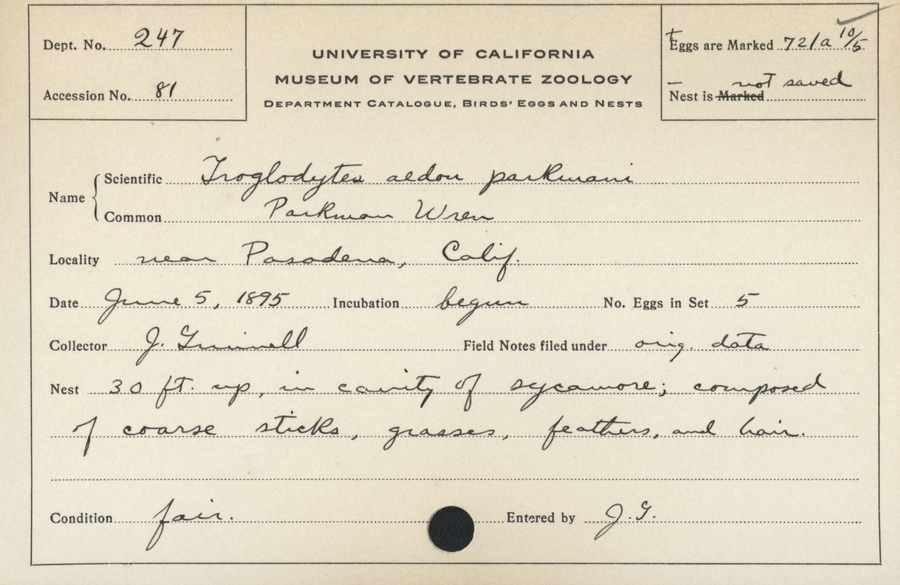 Dept. No. 247
Accession No. 81
UNIVERSITY OF CALIFORNIA
MUSEUM OF VERTEBRATE ZOOLOGY
DEPARTMENT CATALOGUE, BIRDS' EGGS AND NESTS
Eggs are Marked 721a 10/5
Nest is Marked not saved
Name
Scientific Troglodytes aedon parkmani
Common Parkman Wren
Locality near Pasadena, Calif.
Date June 5, 1895 Incubation begun No. Eggs in Set 5
Collector J. Grinnell Field Notes filed under orig. data
Nest 30 ft. up, in cavity of sycamore; composed
of coarse sticks, grasses, feathers, and hair.
Condition fair. Entered by J.G.